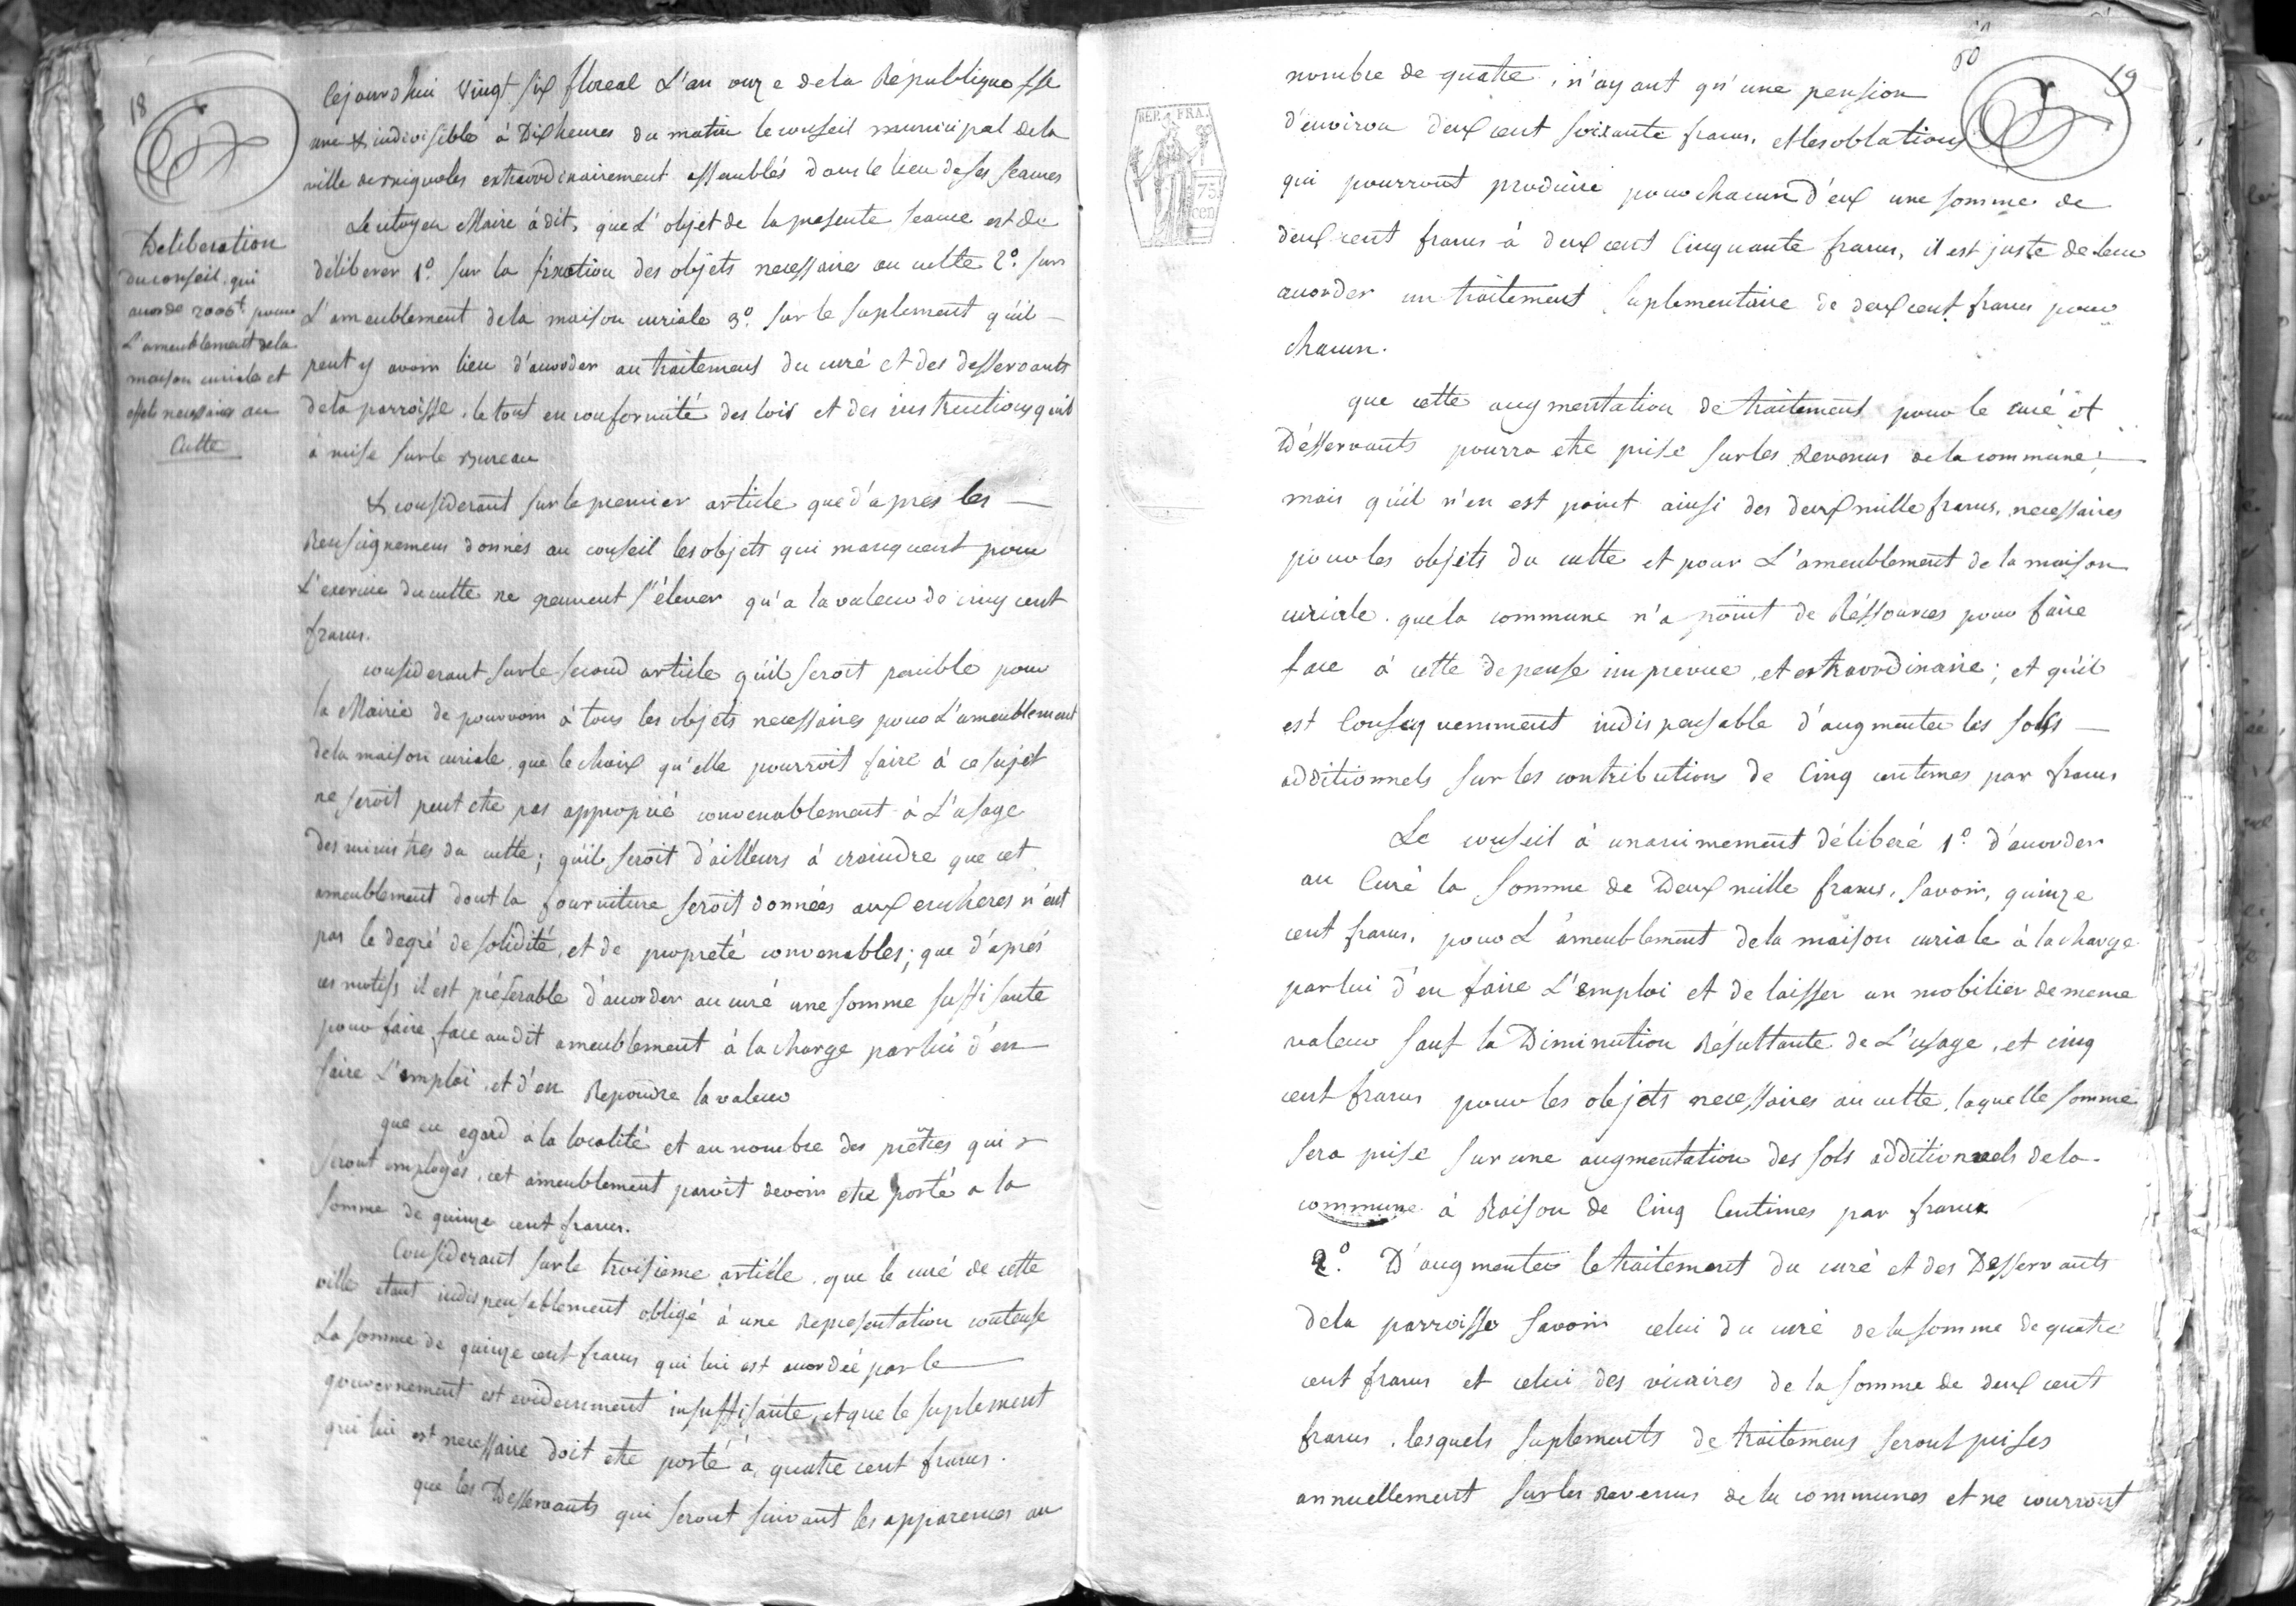 18
Cejourdhui Vingt six floreal L'an onze dela Republique fse
une & indivisible à Dix heures du matin le conseil municipal dela
ville de rignoles extraordinairement assemblés dans le lieu de ses seances
Le citoyen Maire à dit, que L'objet de la presente seance est de
délibérer 1o. sur la fixation des objets necessaires au culte 2o. sur
L'ameublement dela maison curiale 3o. sur le suplement qu'il
peut y avoir lieu d'accorder au traitement du curé et des desservants
dela parroisse. le tout en conformité des lois et des instructions qu'il
à mise sur le Bureau
Deliberation
du conseil qui
accorde 2000t. pour
L'ameublement dela
maison curiale et
objets necessaires au
Culte
& considerant sur le premier article que d'apres les
Renseignemens donnés au conseil les objets qui manquent pour
L'exercice du culte ne peuvent s'élever qu'a la valeur de cinq cent
francs.
considerant sur le second article qu'il seroit penible pour
la Mairie de pourvoir à tous les objets necessaires pour L'ameublement
dela maison curiale, que le choix qu'elle pourroit faire à ce sujet
ne seroit peut etre pas approprié convenablement à L'usage
des ministres du culte; qu'il seroit d'ailleurs à craindre que cet
ameublement dont la fourniture seroit donnée aux encheres n'eut
pas le degré de solidité, et de propreté convenables; que d'aprés
ces motifs il est préférable d'accorder au curé une somme suffisante
pour faire face audit ameublement à la charge par lui d'en
faire L'emploi, et d'en Repondre la valeur
que eu egard à la localité et au nombre des prêtres qui y
seront employés, cet ameublement paroit devoir etre porté a la
somme de quinze cent francs.
Considerant sur le troisieme article, que le curé de cette
ville etant indispensablement obligé à une Representation couteuse
La somme de quinze cent francs qui lui est accordée par le
gouvernement est evidemment insuffisante, et que le suplement
qui lui est necessaire doit etre porté à quatre cent francs.
que les Desservants qui seront suivant les apparences au
REP. FRA.
75
cen
50
19
nombre de quatre, n'ayant qu'une pension
d'environ deux cent soixante francs, et les oblations
qui pourront produire pour chacun d'eux une somme de
deux cent francs à deux cent Cinquante francs, il est juste de leur
accorder un traitement suplementaire de deux cent francs pour
chacun.
que cette augmentation de traitement pour le curé et
Desservants pourra etre prise sur les Revenus de la commune;
mais qu'il n'en est point ainsi des deux mille francs, necessaires
pour les objets du culte et pour L'ameublement de la maison
curiale. que la commune n'a point de Réssources pour faire
face à cette depense imprevue, et extraordinaire; et qu'il
est Consequemment indispensable d'augmenter les sols
additionnels sur les contributions de Cinq centimes par francs
Le conseil à unanimement délibéré 1o. d'accorder
au Curé la somme de Deux mille francs, savoir, quinze
cent francs, pour L'ameublement dela maison curiale à la charge
par lui d'en faire L'emploi et de laisser un mobilier de meme
valeur sauf la Diminution Résultante de L'usage, et cinq
cent francs pour les objets necessaires au culte, laquelle somme
sera prise sur une augmentation des sols additionnels de la
commune à Raison de Cinq Centimes par francs
2o. D'augmenter le traitement du curé et des Desservants
dela parroisse savoir celui du curé de la somme de quatre
cent francs et celui des vicaires de la somme de deux cent
francs. lesquels suplements de traitemens seront prises
annuellement sur les Revenus de la communes et ne courront